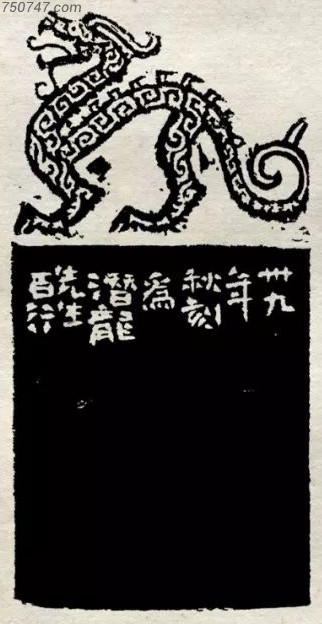 750747.com
卅九
年
秋刻
為
潛龍
先生
行